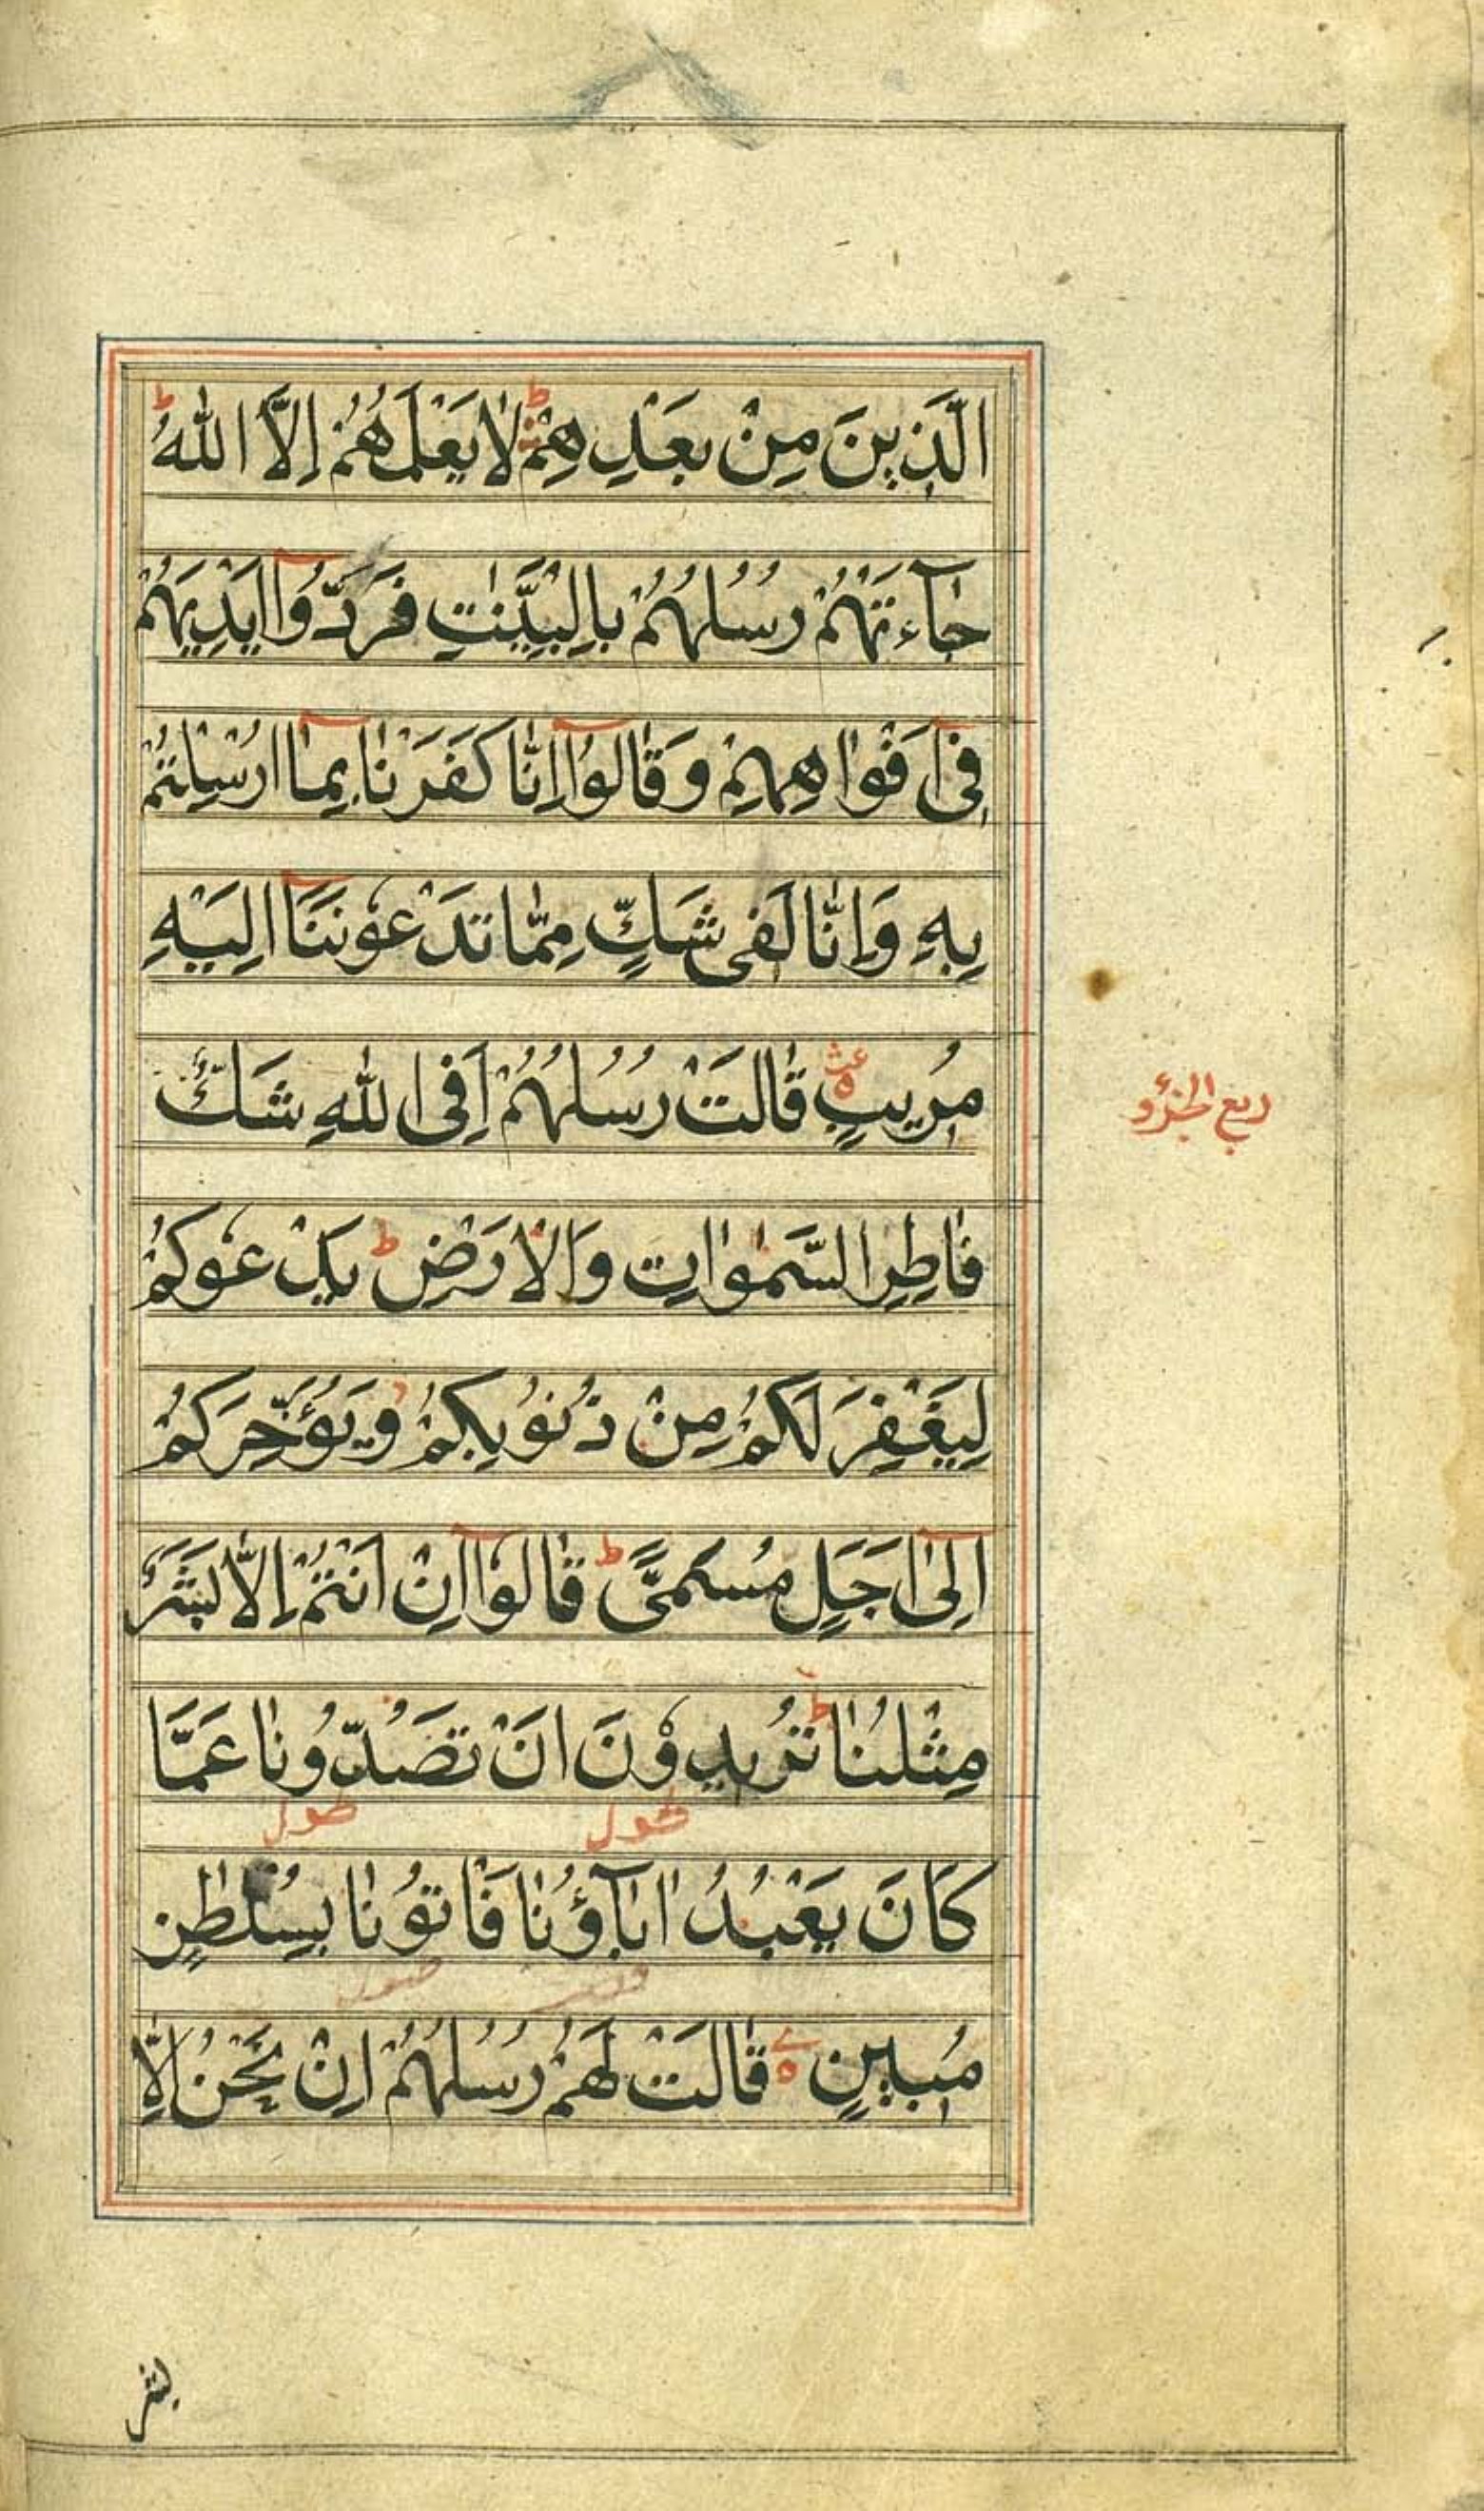 الَّذِينَ مِنْ بَعْدِهِمْ ط لَا يَعْلَمُهُمْ إِلَّا اللّٰهُ ط
جَآءَتْهُمْ رُسُلُهُمْ بِالْبَيِّنٰتِ فَرَدُّوْآ اَيْدِيَهُمْ
فِىْٓ اَفْوَاهِهِمْ وَقَالُوْآ اِنَّا كَفَرْنَا بِمَآ اُرْسِلْتُمْ
بِهٖ وَاِنَّا لَفِى شَكٍّ مِمَّا تَدْعُوْنَنَآ اِلَيْهِ
مُرِيبٍ قَالَتْ رُسُلُهُمْ اَفِى اللّٰهِ شَكٌّ
فَاطِرِ السَّمٰوَاتِ وَالْاَرْضِ ط يَدْعُوكُمْ
لِيَغْفِرَ لَكُمْ مِنْ ذُنُوْبِكُمْ وَيُؤَخِّرَكُمْ
اِلٰٓى اَجَلٍ مُسَمًّى ط قَالُوْآ اِنْ اَنْتُمْ اِلَّا بَشَرٌ
مِثْلُنَا ط تُرِيدُوْنَ اَنْ تَصُدُّوْنَا عَمَّا
طول طول
كَانَ يَعْبُدُ اٰبَآؤُنَا فَأْتُوْنَا بِسُلْطٰنٍ
مُبِينٍ قَالَتْ لَهُمْ رُسُلُهُمْ اِنْ نَحْنُ اِلَّا
ربع الجزؤ
بشر